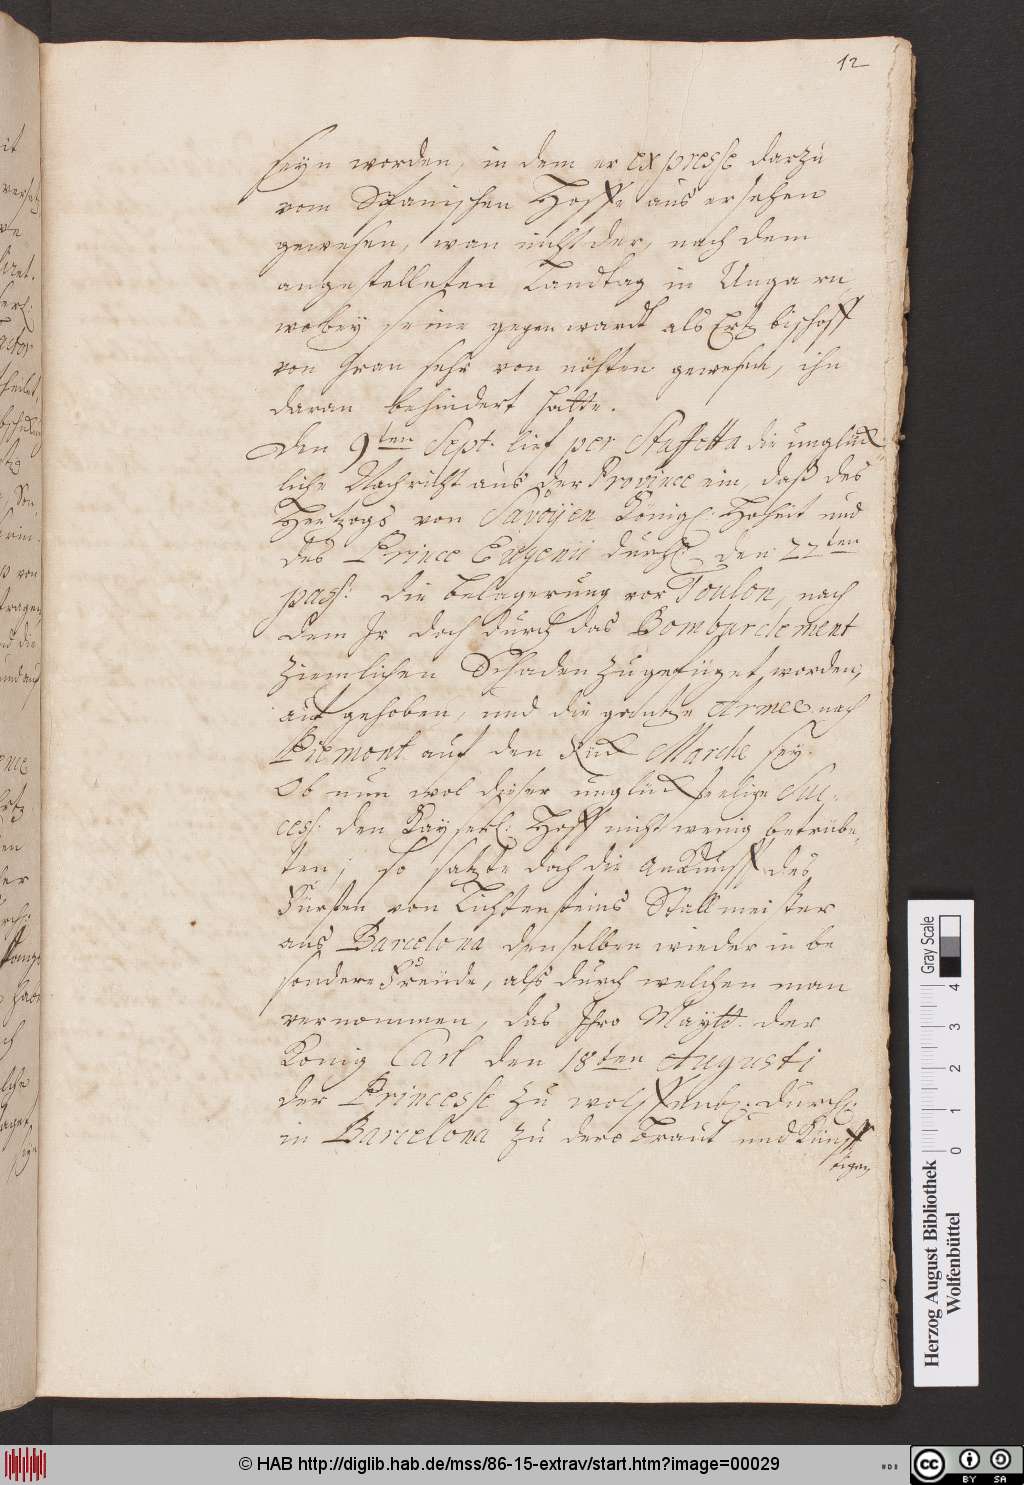 12
seyn worden, in dem er expresse darzu
vom Spanischen Hoffe aus ersehen
gewesen, wan nicht der, nach dem
angestelleten Landtag in Ungarn,
wobey seine gegenwardt als Ertzbischoff
von Gran sehr von nöhten gewesen, ihn
daran behindert hätte.
Den 9ten Sept. lief per Staffetta die unglück-
liche Nachricht aus der Province ein, daß des
Hertzogs von Savoyen Königl. Hoheit und
des Prince Eugenii Durchl. den 22ten
pass: die belagerung vor Toulon, nach
dem Ir doch durch das Bombardement
ziemlichen Schaden zugefüget worden,
aufgehoben, und die gantze Armee nach
Piemont auf den Rück Marche sey.
Ob nun wol dieser unglückseelige Suc-
cess: den Kayserl: Hoff nicht wenig betrübe-
ten; so satzte doch die Ankunfft des
Fürsten von Lichtensteins Stallmeister
aus Barcelona denselben wieder in be
sondere Freude, als durch welchen man
vernommen, das Ihro Maytt. der
König Carl den 18ten Augusti
der Princesse zu Wolffenb: Durchl:
in Barcelona zu dero Braut und Künff
tigen
Herzog August Bibliothek
Wolfenbüttel
0 1 2 3 4
Gray Scale
© HAB http://diglib.hab.de/mss/86-15-extrav/start.htm?image=00029
cc BY SA